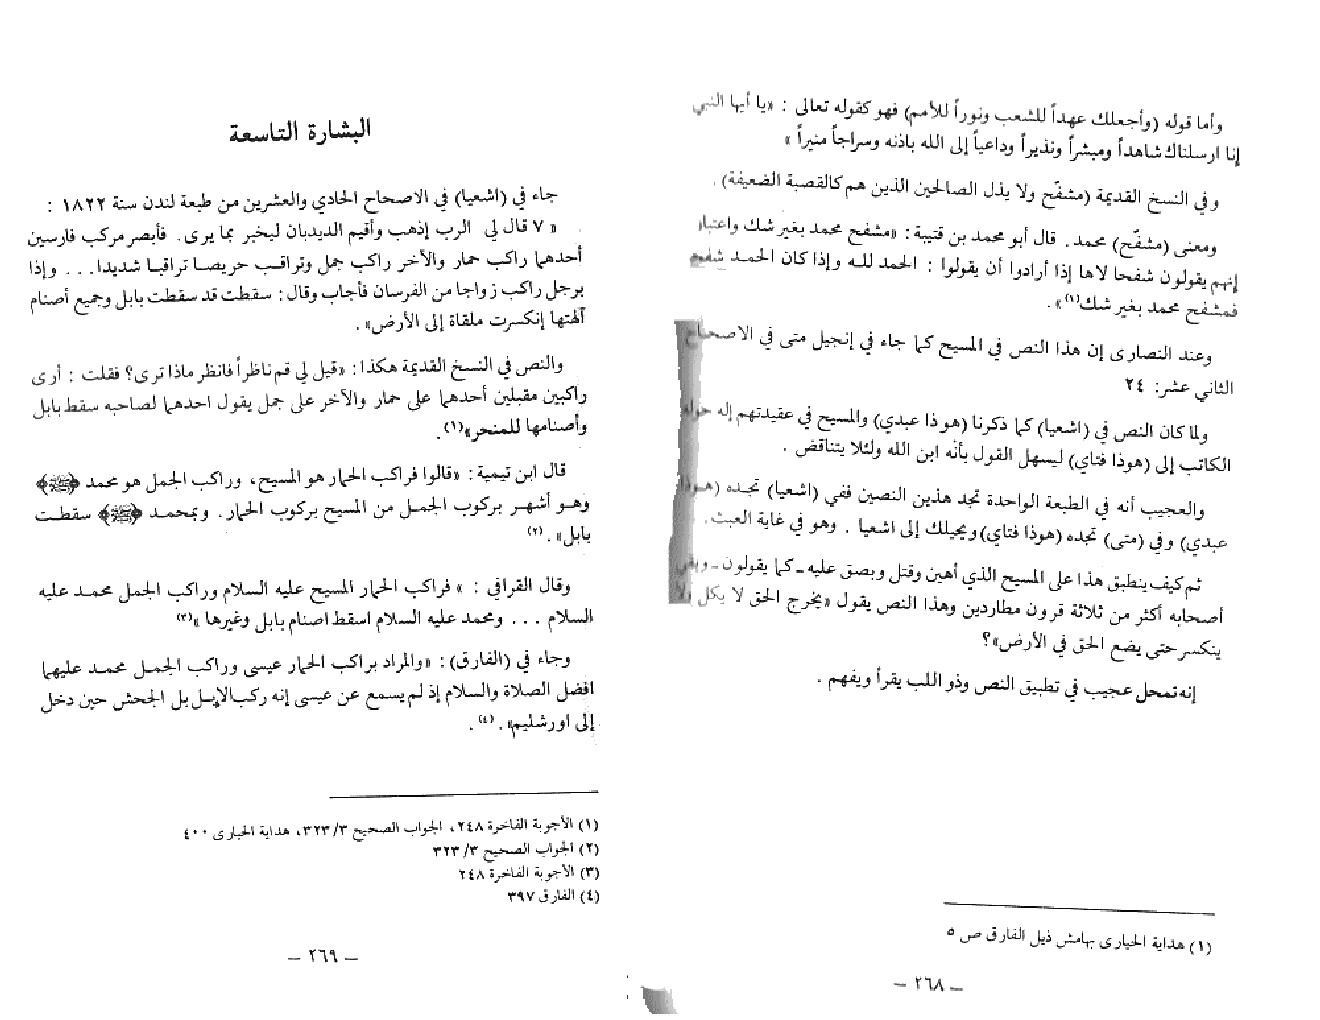 وأما قوله (وأجعلك عهداً للشعب ونوراً للأمم) فهو كقوله تعالى : «يا أيها النبي
إنا ارسلناك شاهداً ومبشراً ونذيراً وداعياً إلى الله باذنه وسراجاً منيراً »
وفي النسخ القديمة (مشفّح ولا يذل الصالحين الذين هم كالقصبة الضعيفة) .
ومعنى (مشفّح) محمد . قال أبو محمد بن قتيبة : «مشفح محمد بغير شك واعتبار
إنهم يقولون شفحا لاها إذا أرادوا أن يقولوا : الحمد لله وإذا كان الحمد شفح
فمشفح محمد بغير شك(١)» .
وعند النصارى إن هذا النص في المسيح كما جاء في إنجيل متى في الاصحاح
الثاني عشر: ٢٤
ولما كان النص في (اشعيا) كما ذكرنا (هوذا عبدي) والمسيح في عقيدتهم إله حوله
الكاتب إلى (هوذا فتاي) ليسهل القول بأنه ابن الله ولئلا يتناقض .
والعجيب أنه في الطبعة الواحدة تجد هذين النصين ففي (اشعيا) تجده (هوذا
عبدي) وفي (متى) تجده (هوذا فتاي) ويحيلك إلى اشعيا . وهو في غاية العبث .
ثم كيف ينطبق هذا على المسيح الذي أهين وقتل وبصق عليه ـ كما يقولون ـ وبقي
أصحابه أكثر من ثلاثة قرون مطاردين وهذا النص يقول «يخرج الحق لا يكل ولا
ينكسر حتى يضع الحق في الأرض»؟
إنه تمحل عجيب في تطبيق النص وذو اللب يقرأ ويفهم .
(١) هداية الحيارى بهامش ذيل الفارق ص ٥
ـ ٢٦٨ ـ
البشارة التاسعة
جاء في (اشعيا) في الاصحاح الحادي والعشرين من طبعة لندن سنة ١٨٢٢ :
« ٧ قال لي الرب إذهب وأقيم الديدبان ليخبر بما يرى . فأبصر مركب فارسين
أحدهما راكب حمار والآخر راكب جمل وتراقب حريصا تراقبا شديدا . . . وإذا
برجل راكب زواجا من الفرسان فأجاب وقال : سقطت قد سقطت بابل وجميع أصنام
آلهتها إنكسرت ملقاة إلى الأرض» .
والنص في النسخ القديمة هكذا : «قيل لي قم ناظراً فانظر ماذا ترى؟ فقلت : أرى
راكبين مقبلين أحدهما على حمار والآخر على جمل يقول احدهما لصاحبه سقط بابل
وأصنامها للمنحر»(١) .
قال ابن تيمية : «قالوا فراكب الحمار هو المسيح، وراكب الجمل هو محمد ﴿ﷺ﴾
وهو أشهر بركوب الجمل من المسيح بركوب الحمار . وبمحمد ﴿ﷺ﴾ سقطت
بابل» . (٢)
وقال القرافي : « فراكب الحمار المسيح عليه السلام وراكب الجمل محمد عليه
السلام . . . ومحمد عليه السلام اسقط اصنام بابل وغيرها »(٣)
وجاء في (الفارق) : «والمراد براكب الحمار عيسى وراكب الجمل محمد عليهما
افضل الصلاة والسلام إذ لم يسمع عن عيسى إنه ركب الإبل بل الجحش حين دخل
إلى اورشليم» . (٤) .
(١) الأجوبة الفاخرة ٢٤٨، الجواب الصحيح ٣/ ٣٢٣، هداية الحيارى ٤٠٠
(٢) الجواب الصحيح ٣/ ٣٢٣
(٣) الأجوبة الفاخرة ٢٤٨
(٤) الفارق ٣٩٧
ـ ٢٦٩ ـ